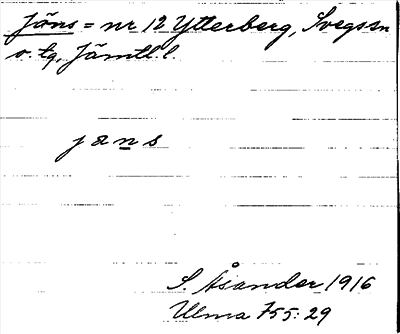 Jäns = nr 12 Ytterberg, Svegs sn
o. tg, Jämtl. l.
jans
S. Åsander 1916
Ulma 755:29